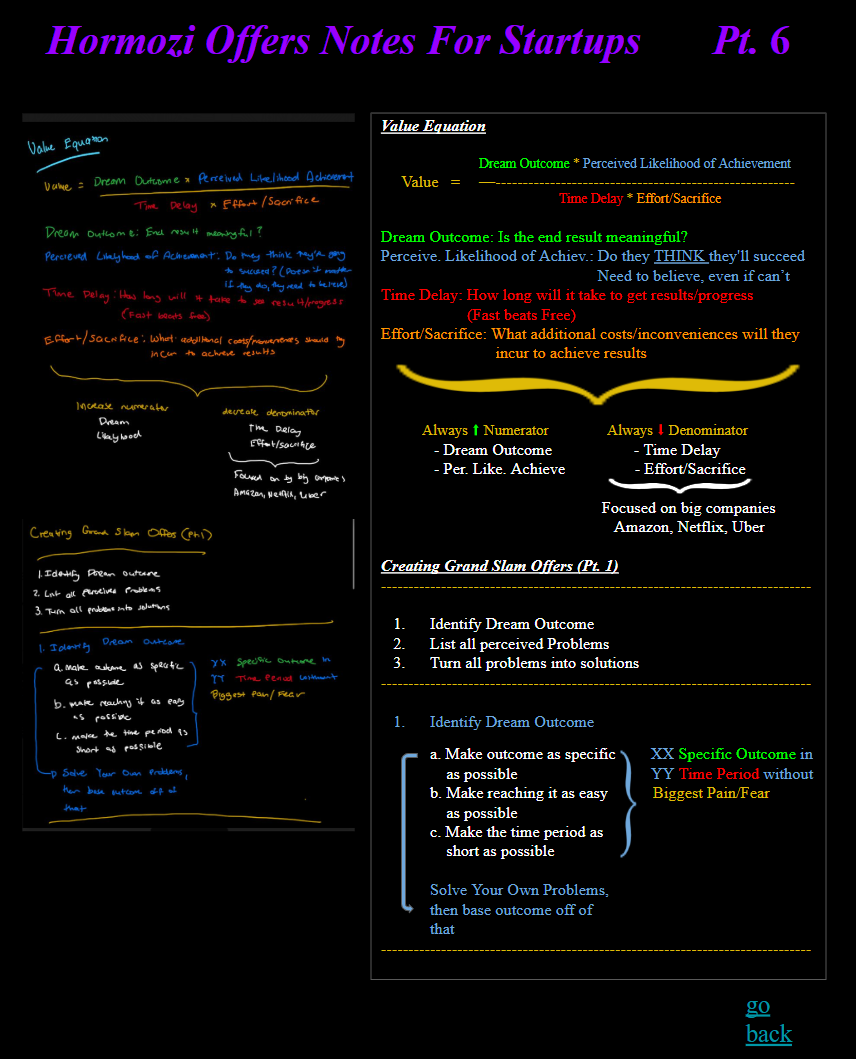 Hormozi Offers Notes For Startups Pt. 6
Value Equation
Value = Dream Outcome * Perceived Likelihood Achievement
Time Delay * Effort/Sacrifice
Dream Outcome: End result meaningful?
Percieved Likelyhood of Achievement: Do they think they're going
to succeed? (Doesn't matter
if they do, they need to believe)
Time Delay: How long will it take to see result/progress
(Fast beats free)
Effort/Sacrifice: What additional costs/inconveniences should they
incur to achieve results
Increase numerator
Dream
Likelyhood
decrease denominator
Time Delay
Effort/Sacrifice
Focused on by big companies
Amazon, Netflix, Uber
Creating Grand Slam Offers (Pt.1)
1. Identify Dream outcome
2. List all perceived Problems
3. Turn all problems into solutions
1. Identify Dream Outcome
a. Make outcome as specific
as possible
b. make reaching it as easy
as possible
c. make the time period as
short as possible
XX Specific Outcome in
YY Time Period without
Biggest Pain/Fear
Solve Your Own Problems,
then base outcome off of
that
Value Equation
Dream Outcome * Perceived Likelihood of Achievement
Value = —--------------------------------------------------
Time Delay * Effort/Sacrifice
Dream Outcome: Is the end result meaningful?
Perceive. Likelihood of Achiev.: Do they THINK they'll succeed
Need to believe, even if can’t
Time Delay: How long will it take to get results/progress
(Fast beats Free)
Effort/Sacrifice: What additional costs/inconveniences will they
incur to achieve results
Always ↑ Numerator
- Dream Outcome
- Per. Like. Achieve
Always ↓ Denominator
- Time Delay
- Effort/Sacrifice
Focused on big companies
Amazon, Netflix, Uber
Creating Grand Slam Offers (Pt. 1)
1. Identify Dream Outcome
2. List all perceived Problems
3. Turn all problems into solutions
1. Identify Dream Outcome
a. Make outcome as specific
as possible
b. Make reaching it as easy
as possible
c. Make the time period as
short as possible
XX Specific Outcome in
YY Time Period without
Biggest Pain/Fear
Solve Your Own Problems,
then base outcome off of
that
go
back